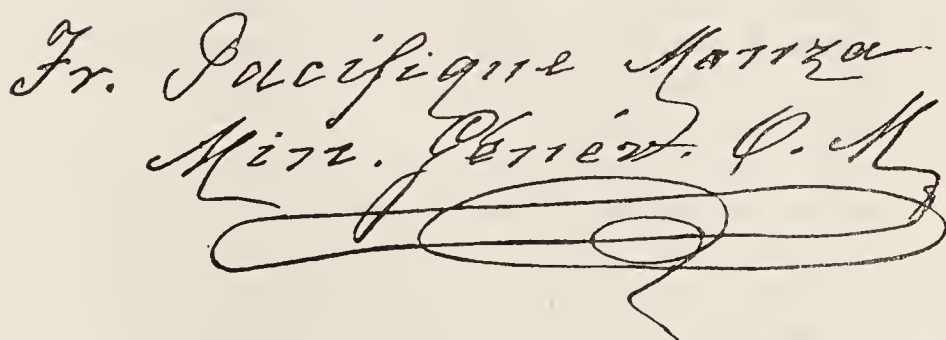 Fr. Pacifique Monza
Min. Génér. O. M